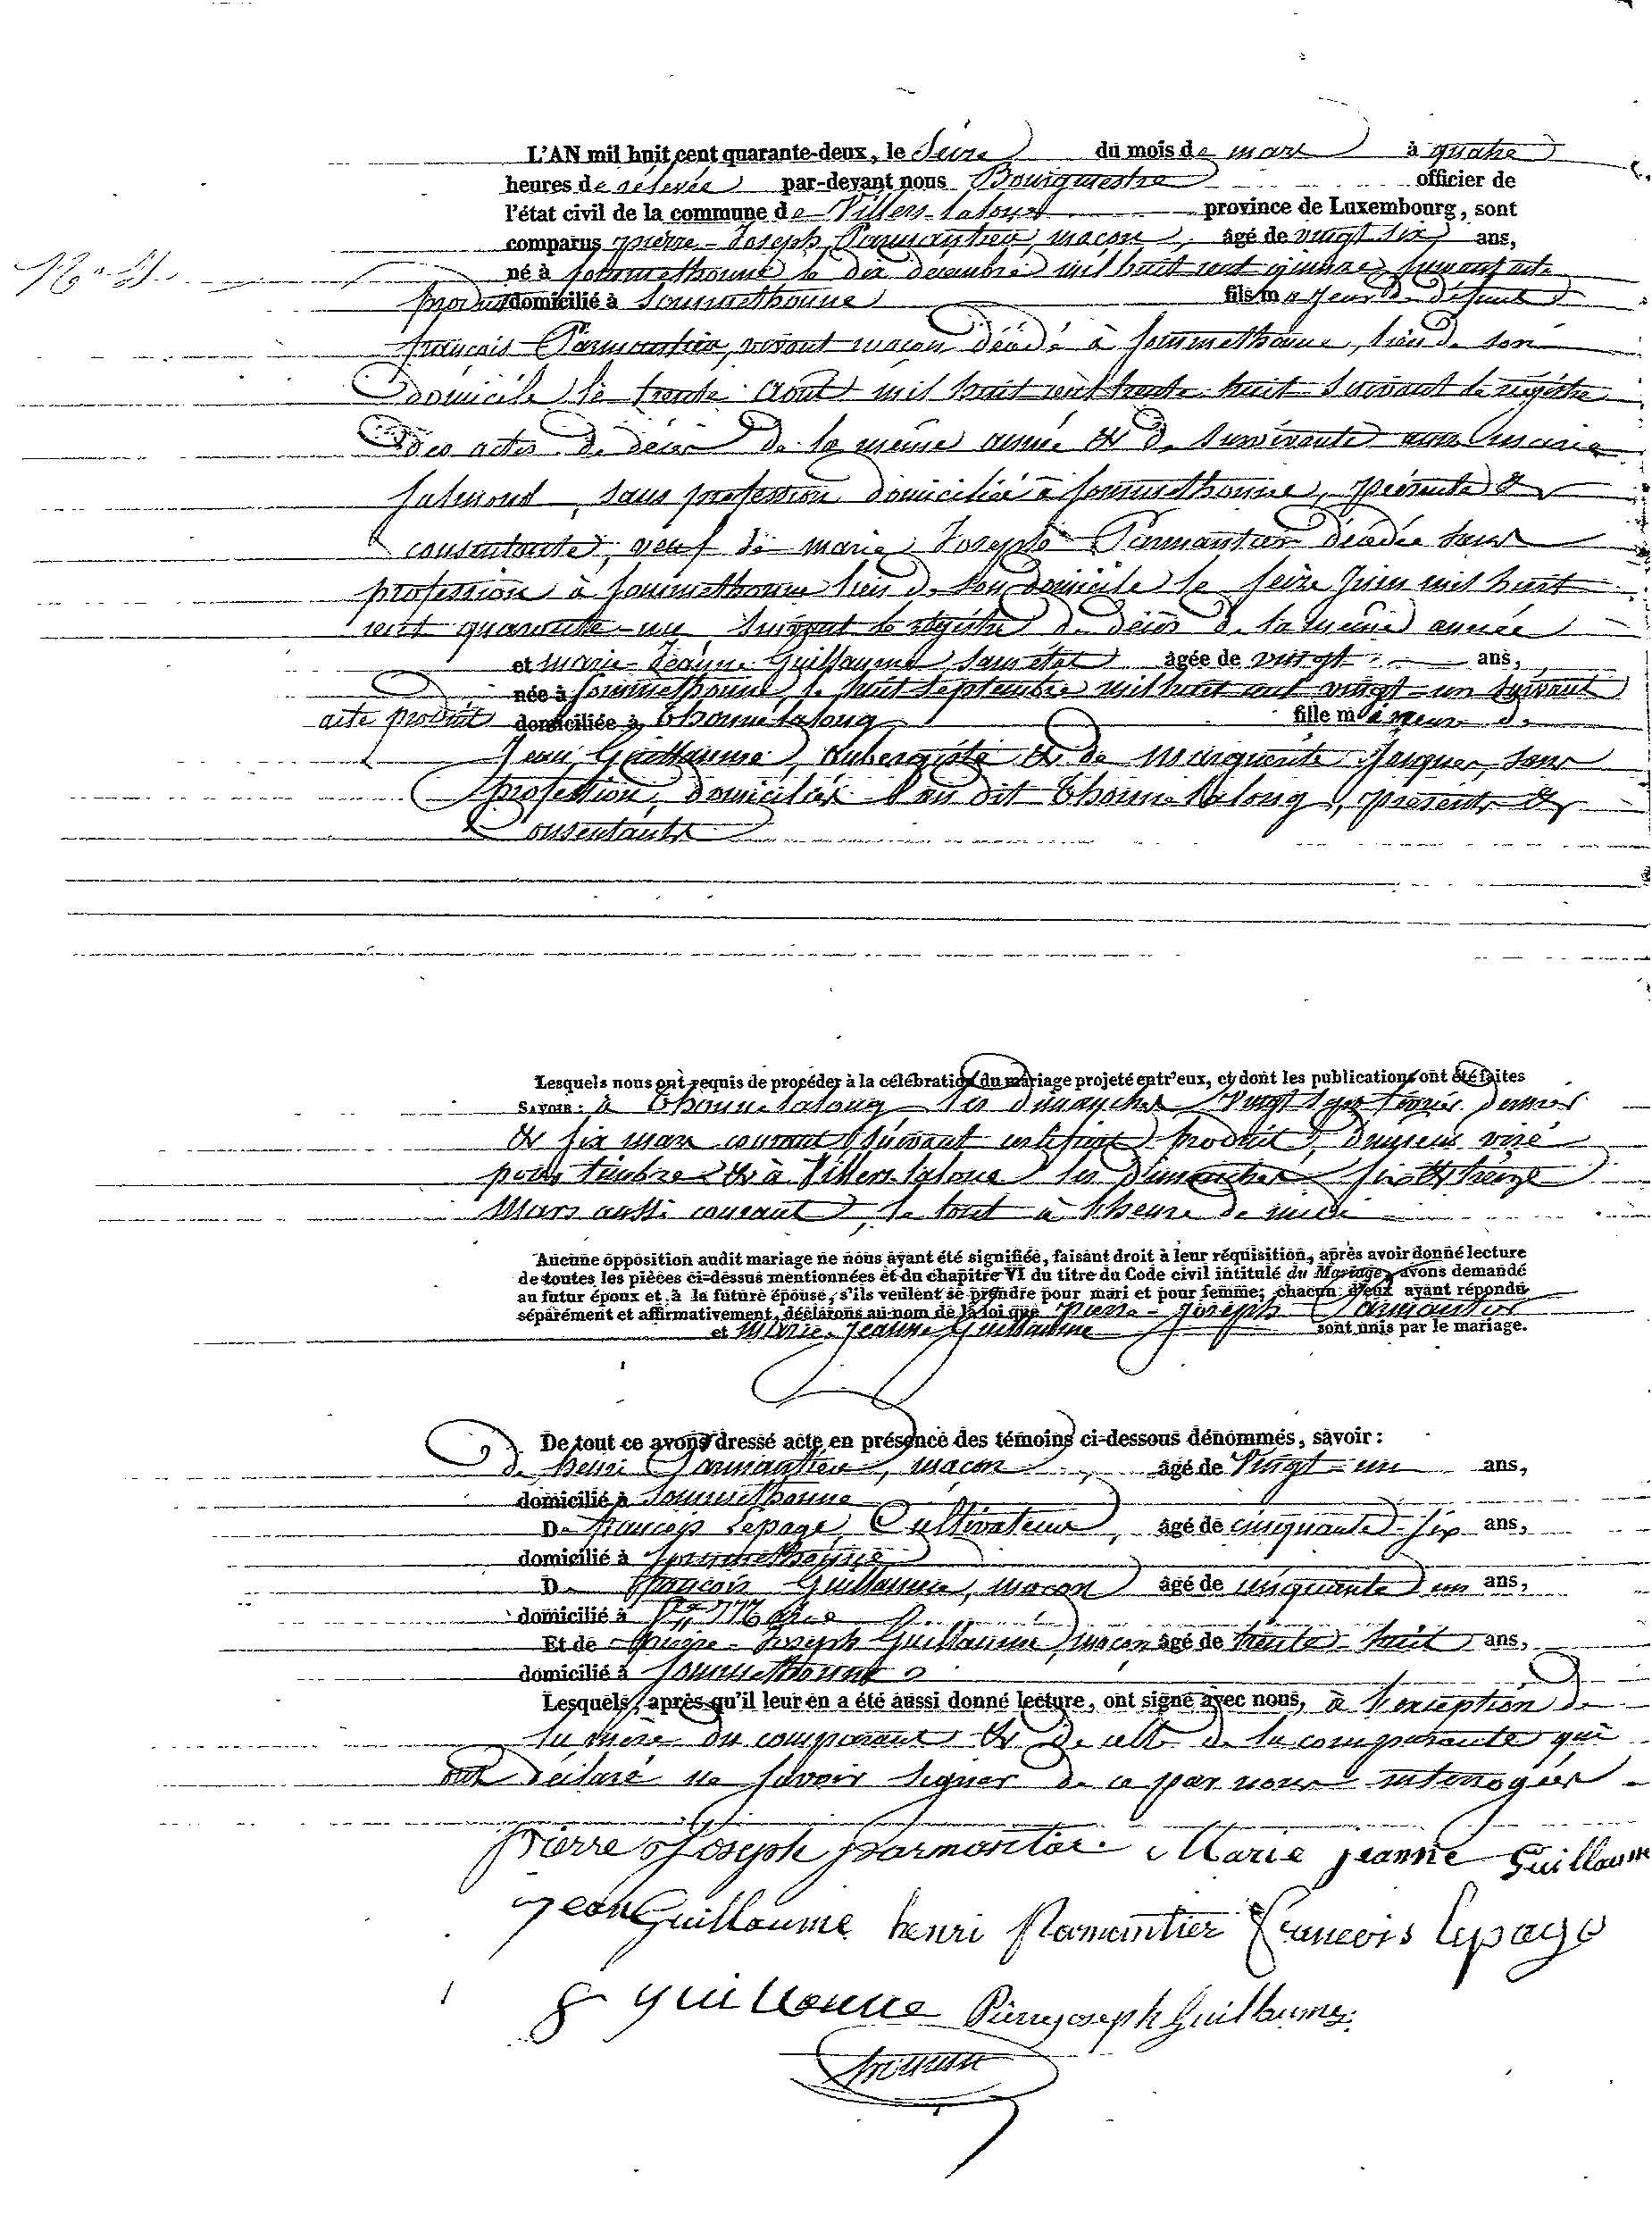 L'AN mil huit cent quarante-deux, le Seize du mois de mars à quatre
heures de relevée par-devant nous Bourguestre officier de
l'état civil de la commune de Villers-laloue province de Luxembourg, sont
comparus pierre-Joseph Parmantier, maçon, âgé de vingt six ans,
né à Sommethonne le dix décembre mil huit cent quinze, suivant acte
produit domicilié à Sommethonne fils majeur de défunt
françois Parmantier, vivant maçon décédé à Sommethonne, lieu de son
domicile le trente Août mil huit cent trente-huit suivant le régistre
des actes de décès de la même année & de survivante marie
Salmond, sans profession domiciliée à Sommethonne, présente &
consentante, veuf de marie Josephe Parmantier décédée sans
profession à Sommethonne lieu de son domicile le seize Juin mil huit
cent quarante-un suivant le régistre de décès de la même année
et marie-Jeanne Guillaume, sans état âgée de vingt ans,
née à Sommethonne, le huit Septembre mil huit cent vingt-un suivant
acte produit domiciliée à Thonne-lalong fille mineure de
Jean Guillaume, Aubergiste & de Marguerite Jacques, sans
profession, domiciliés au dit Thonne-lalong, présents &
consentants
Lesquels nous ont requis de procéder à la célébration du mariage projeté entr'eux, et dont les publications ont été faites
SAVOIR : à Thonne-lalong les dimanches Vingt sept février dernier
& six mars courant suivant certificat produit, visé
pour timbre & à Villers-laloue les Dimanches six & treize
Mars aussi courant, le tout à l'heure de midi
Aucune opposition audit mariage ne nous ayant été signifiée, faisant droit à leur réquisition, après avoir donné lecture
de toutes les pièces ci-dessus mentionnées et du chapitre VI du titre du Code civil intitulé du Mariage, avons demandé
au futur époux et à la future épouse, s'ils veulent se prendre pour mari et pour femme; chacun d'eux ayant répondu
séparément et affirmativement, déclarons au nom de la loi que pierre-Joseph Parmantier
et Marie-Jeanne Guillaume sont unis par le mariage.
De tout ce avons dressé acte en présence des témoins ci-dessous dénommés, savoir :
de henri Parmantier, maçon, âgé de Vingt-un ans,
domicilié à Sommethonne
De françois Lepage, Cultivateur, âgé de cinquante-six ans,
domicilié à Sommethonne
De françois Guillaume, maçon âgé de cinquante un ans,
domicilié à
Et de pierre-Joseph Guillaume, maçon âgé de trente-huit ans,
domicilié à Sommethonne
Lesquels, après qu'il leur en a été aussi donné lecture, ont signé avec nous, à l'exception de
la mère du comparant & de celle de la comparante qui
ont déclaré ne savoir signer de ce par nous interrogées
Pierre Joseph parmantier Marie jeanne Guillaume
jean Guillaume henri Parmantier francois Lepage
f guillaume Pierrejoseph Guillaume